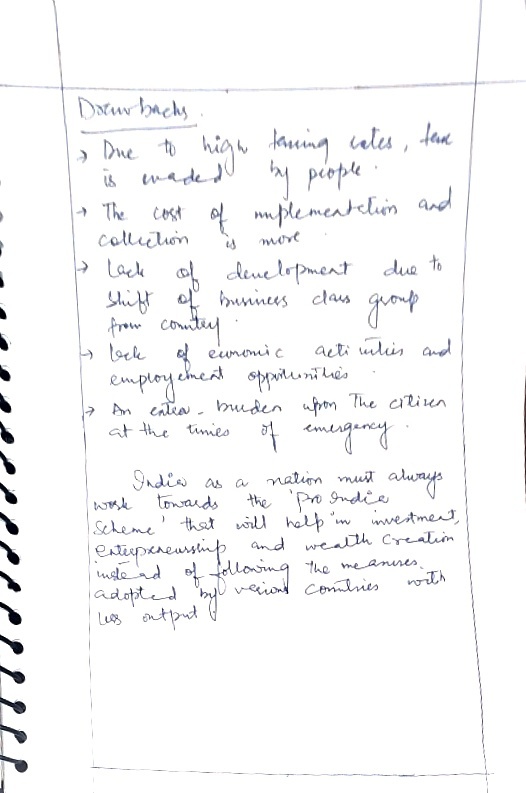 Drawbacks.
→ Due to high taxing rates, tax
is evaded by people.
→ The cost of implementation and
collection is more.
→ Lack of development due to
shift of business class group
from country.
→ lack of economic activities and
employement opportunities.
→ An extra-burden upon The citizen
at the times of emergency.
India as a nation must always
work towards the 'Pro India
Scheme' that will help in investment,
entrepreneurship and wealth creation
instead of following The measures
adopted by various countries with
less output